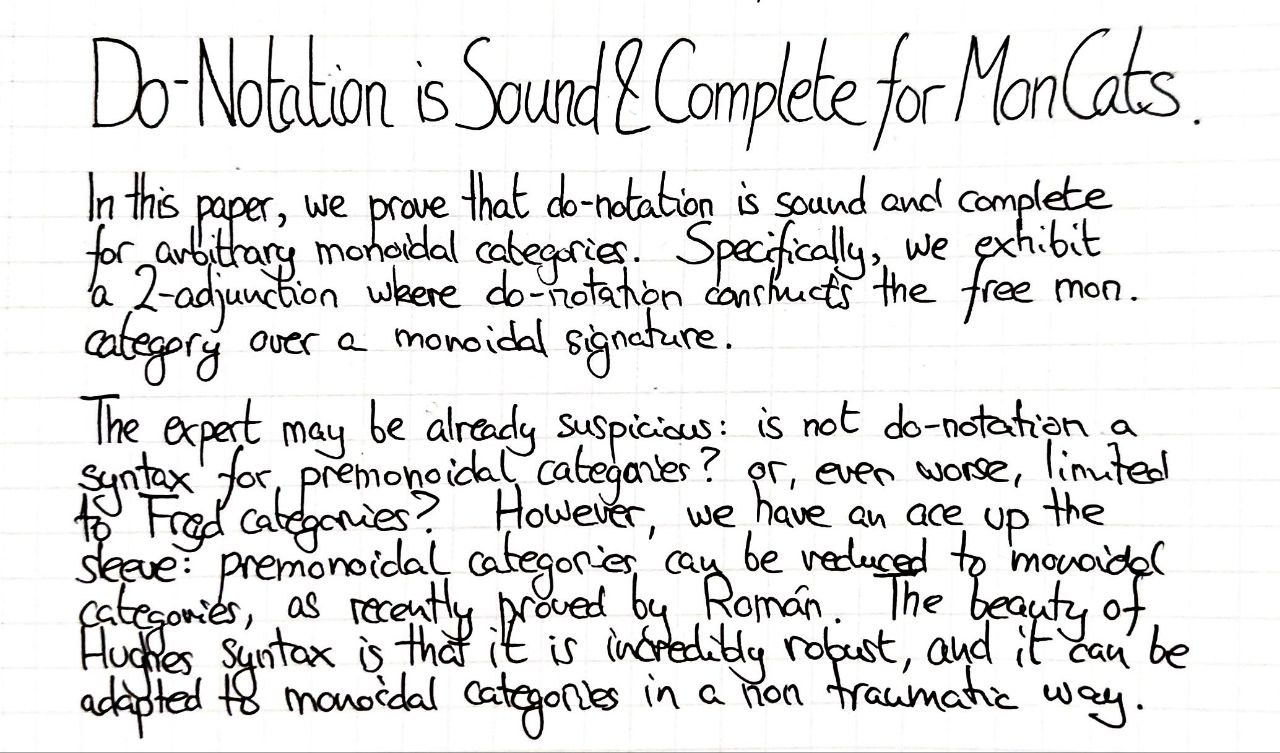 Do-Notation is Sound & Complete for MonCats.
In this paper, we prove that do-notation is sound and complete
for arbitrary monoidal categories. Specifically, we exhibit
a 2-adjunction where do-notation constructs the free mon.
category over a monoidal signature.
The expert may be already suspicious: is not do-notation a
syntax for premonoidal categories? or, even worse, limited
to Freyd categories? However, we have an ace up the
sleeve: premonoidal categories can be reduced to monoidal
categories, as recently proved by Román. The beauty of
Hughes syntax is that it is incredibly robust, and it can be
adapted to monoidal categories in a non traumatic way.